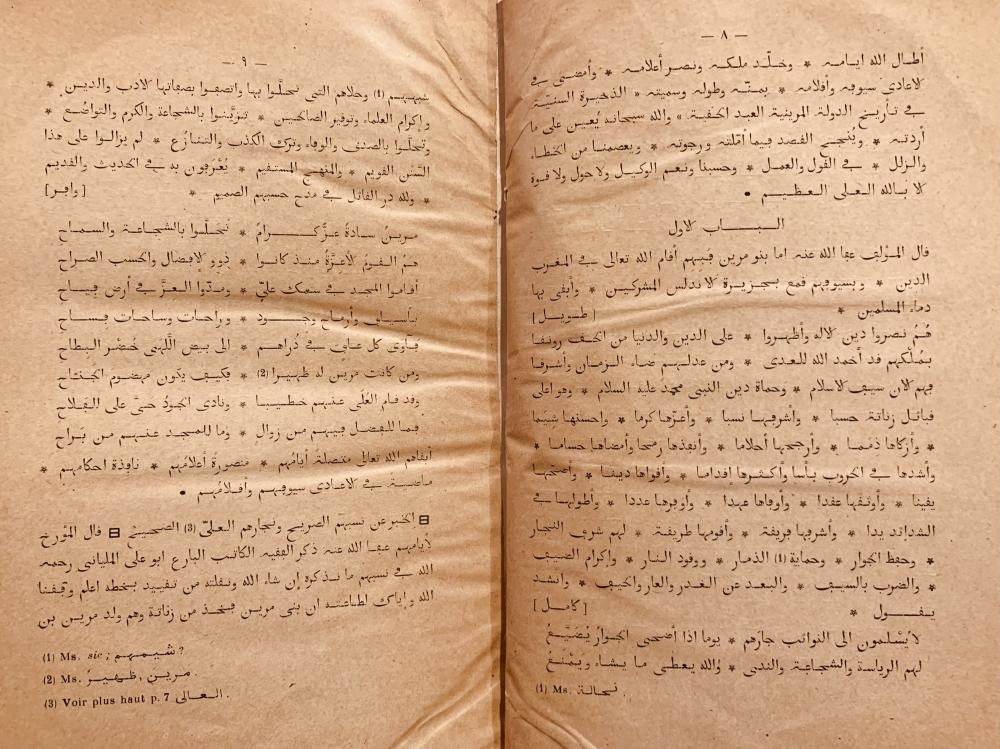 — ٨ —
أطال الله ايامه * وخلّد ملكه ونصر أعلامه * وأمضى في
الاعادى سيوفه وأقلامه * بمنّه وطوله وسميته « الذخيرة السنيّة
في تأريخ الدولة المرينية العبد الحقية » والله سبحانه يُعين على ما
أردته * ويُنجح القصد فيما أمّلته ورجوته * ويعصمنا من الخطاء
والزلل * في القول والعمل * وحسبنا ونعم الوكيل ولا حول ولا قوة
الا بالله العلى العظيم •
البـاب الاول
قال المؤلف عفا الله عنه اما بنو مرين فبهم أقام الله تعالى في المغرب
الدين * وبسيوفهم قمع بجزيرة الاندلس المشركين * وأبقى بها
دماء المسلمين * [طويل]
هُمُ نصروا دين الاله وأظهروا * على الدين والدنيا من الحق رونقا
بمُلكهم قد أخمد الله للعدى * ومن عدلهم ضاء الزمان وأشرقا
فهم الان سيف الاسلام * وحماة دين النبى محمد عليه السلام * وهو اعلى
قبائل زناتة حسبا * وأشرفها نسبا * وأغزرها كرما * واحسنها شيما
* وأزكاها ذمما * وأرجحها أحلاما * وأنفذها رمحا وأمضاها حساما *
وأشدها في الحروب بأسا وأكثرها إقداما * وأقواها دينا * وأصحّها
يقينا * وأوثقها عقدا * وأوفاها عهدا * وأوفرها عددا * وأطولها في
الشدائد يدا * وأشرفها فريقة * وأقومها طريقة * لهم شرى النجار
* وحفظ الجوار * وحماية (1) الذمار * ووقود النار * وإكرام الضيف
* والضرب بالسيف * والبعد عن الغدر والعار والحيف * وأنشد
يقول * [كامل]
لا يُسْلمون الى النوائب جارهم * يوما اذا أضحى الجوارُ يُضَيَّعُ
لهم الرياسة والشجاعة والندى * والله يعطى ما يشاء ويمْنعُ
(1) Ms. نحالة.
— ٩ —
شيمهم (1) وحلاهم التى تحلّوا بها واتصفوا بصفاتها الادب والدين *
وإكرام العلماء وتوقير الصالحين * تزيّنوا بالشجاعة والكرم والتواضع *
وتحلّوا بالصدق والوفاء وترك الكذب والتنازع * لم يزالوا على هذا
السَّنن القويم * والمنهج المستقيم * يُعْرفون به في الحديث والقديم
* ولله در القائل في مدح حسبهم الصميم * [وافر]
مرينُ سادةُ غرٌّ كرامٌ * تحلّوا بالشجاعة والسماح
همُ القوم الأعزّةُ منذ كانوا * ذوو الافضال والحسب الصراح
أقاموا المجد في سمك علىّ * ومدّوا العزّ في أرض فياح
بأسياف وأرماح وجود * وراحات وساحات فساح
فأوى كل عاف في ذراهم * الى بيض اللُّهى خُضْر البطاح
ومن كانت مرين له ظهيرا (2) * فكيف يكون مهضوم الجناح
وقد قام العُلَى عنهم خطيبا * ونادى الجودُ حىّ على الفلاح
فما للفضل فيهم من زوال * وما للمجد عنهم من براح
أبقاهم الله تعالى متصلة أيامُهم * منصورة أعلامُهم * نافذة احكامهم *
ماضية في الاعادى سيوفهم وأقلامُهم •
⊟ الخبر عن نسبهم الصريح ونجارهم العلىّ (3) الصحيح ⊟ قال المؤرخ
لأيامهم عفا الله عنه ذكر الفقيه الكاتب البارع ابو على الملياني رحمه
الله في نسبهم ما نذكره إن شاء الله ونقلته من تقييد بخطه اعلم وفّقنا
الله وإياك لطاعته ان بنى مرين فخذ من زناتة وهم ولد مرين بن
(1) Ms. sic; شيمهم ?
(2) Ms. مرين, ظهيرُ.
(3) Voir plus haut p. 7 العالى.